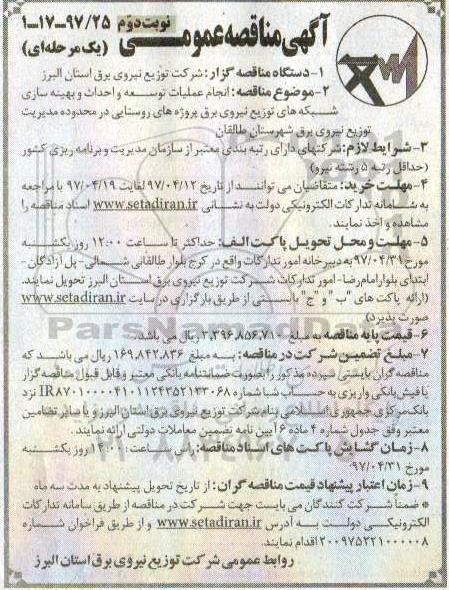 آگهی مناقصه عمومی نوبت دوم ۹۷/۲۵-۱۷-۱
(یک مرحله‌ای)
۱-دستگاه مناقصه گزار: شرکت توزیع نیروی برق استان البرز
۲-موضوع مناقصه: انجام عملیات توسعه و احداث و بهینه سازی
شبکه های توزیع نیروی برق پروژه های روستایی در محدوده مدیریت
توزیع نیروی برق شهرستان طالقان
۳-شرایط لازم: شرکتهای دارای رتبه بندی معتبر از سازمان مدیریت و برنامه ریزی کشور
(حداقل رتبه ۵ رشته نیرو)
۴-مهلت خرید: متقاضیان می توانند از تاریخ ۹۷/۰۴/۱۲ لغایت ۹۷/۰۴/۱۹ با مراجعه
به سامانه تدارکات الکترونیکی دولت به نشانی www.setadiran.ir اسناد مناقصه را
مشاهده و اخذ نمایند.
۵-مهلت و محل تحویل پاکت الف: حداکثر تا ساعت ۱۲:۰۰ روز یکشنبه
مورخ ۹۷/۰۴/۳۱ به دبیرخانه امور تدارکات واقع در کرج بلوار طالقانی شمالی-پل آزادگان-
ابتدای بلوار امام رضا- امور تدارکات شرکت توزیع نیروی برق استان البرز تحویل نمایند.
(ارائه پاکت های "ب" و "ج" بایستی از طریق بارگزاری در سایت www.setadiran.ir
صورت پذیرد)
۶-قیمت پایه مناقصه به مبلغ ۳,۳۹۶,۸۵۶,۷۱۰ ریال می باشد.
۷-مبلغ تضمین شرکت در مناقصه: به مبلغ ۱۶۹,۸۴۲,۸۳۶ ریال می باشد که
مناقصه گران بایستی سپرده مذکور را بصورت ضمانتنامه بانکی معتبر و قابل قبول مناقصه گزار
یا فیش بانکی واریزی به حساب شبا شماره IR۸۷۰۱۰۰۰۰۴۱۰۱۱۲۴۳۵۲۱۳۳۰۶۸ نزد
بانک مرکزی جمهوری اسلامی بنام شرکت توزیع نیروی برق استان البرز و یا سایر تضامین
معتبر وفق جدول شماره ۴ ماده ۶ آیین نامه تضمین معاملات دولتی ارائه نمایند.
۸-زمان گشایش پاکت های اسناد مناقصه: راس ساعت: ۱۴:۰۰ روز یکشنبه
مورخ ۹۷/۰۴/۳۱
۹-زمان اعتبار پیشنهاد قیمت مناقصه گران: از تاریخ تحویل پیشنهاد به مدت سه ماه
* ضمناً شرکت کنندگان می بایست جهت شرکت در مناقصه از طریق سامانه تدارکات
الکترونیکی دولت به آدرس www.setadiran.ir و از طریق فراخوان شماره
۲۰۰۹۷۵۲۲۱۰۰۰۰۰۸ اقدام نمایند.
روابط عمومی شرکت توزیع نیروی برق استان البرز
ParsNamadData